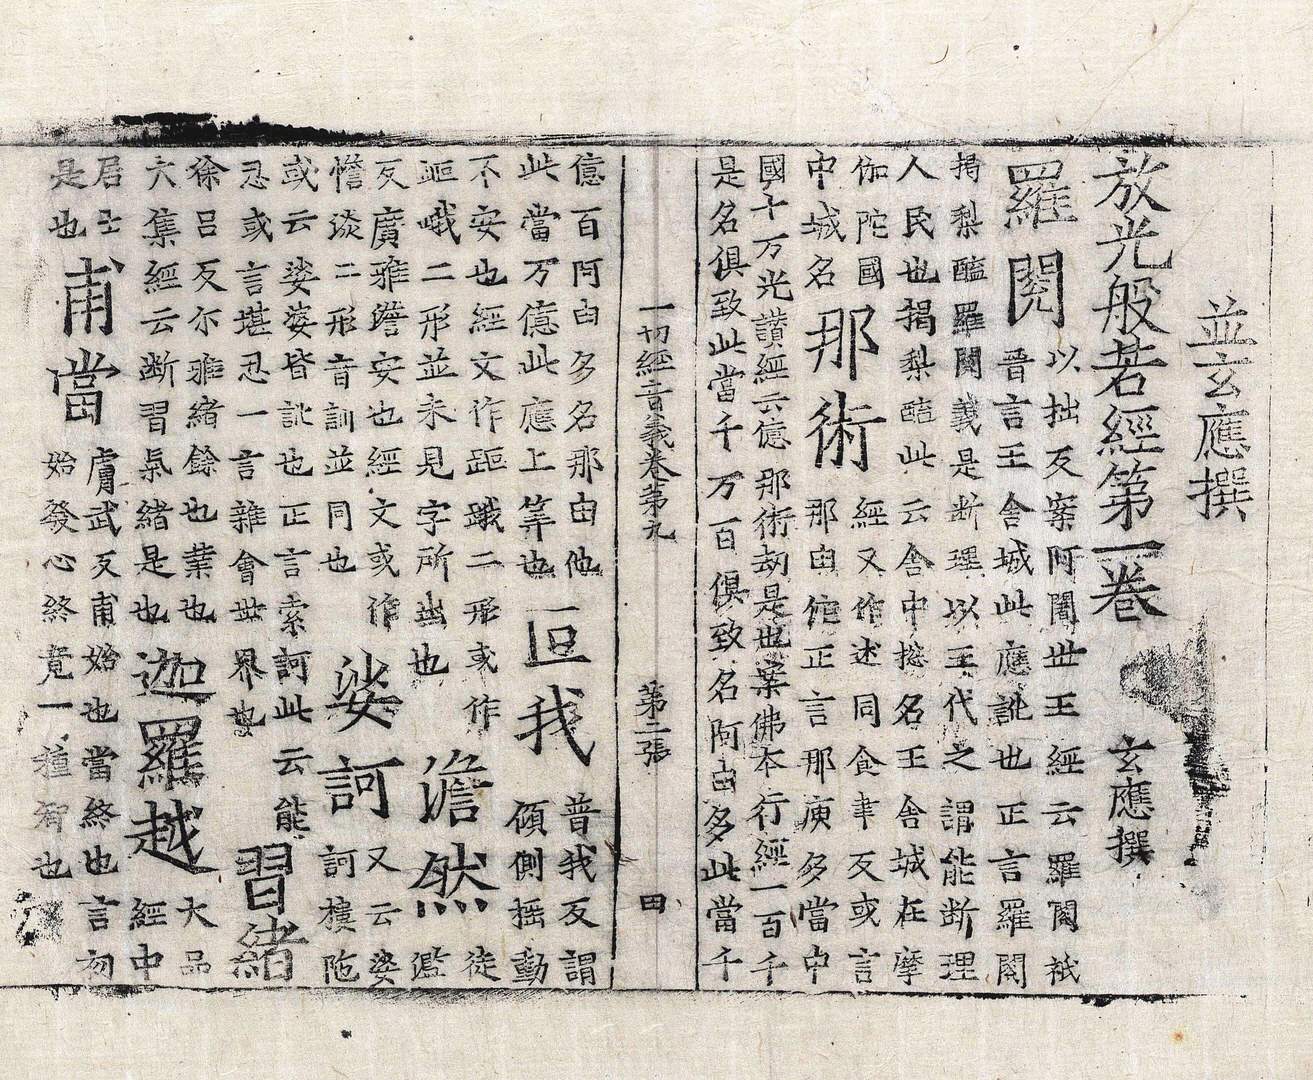 並玄應撰
放光般若經第一卷 玄應撰
羅閱
以拙反案阿闍世王經云羅閱祇
晉言王舍城此應訛也正言羅閱
揭梨醯羅閱義是斷理以王代之謂能斷理
人民也揭梨醯此云舍中揔名王舍城在摩
伽陀國
中城名
那術
經又作述同食聿反或言
那由佗正言那庾多當中
國十万光讃經云億那術劫是也案佛本行經一百千
是名俱致此當千万百俱致名阿由多此當千
一切經音義卷第九 第二張 田
億百阿由多名那由他
此當万億此應上筭也
叵我
普我反謂
傾側搖動
不安也經文作距䟫二形或作
岠峨二形並未見字所出也
澹然
徒
濫
反廣雅澹安也經文或作
憺淡二形音訓並同也
娑訶
又云娑
訶樓陁
或云娑婆皆訛也正言索訶此云能
忍或言堪忍一言雜會世界也
習緒
徐呂反尒雅緒餘也業也
大集經云断習氣緒是也
迦羅越
大品
經中
居士
是也
甫當
膚武反甫始也當終也言初
始發心終竟一種智也